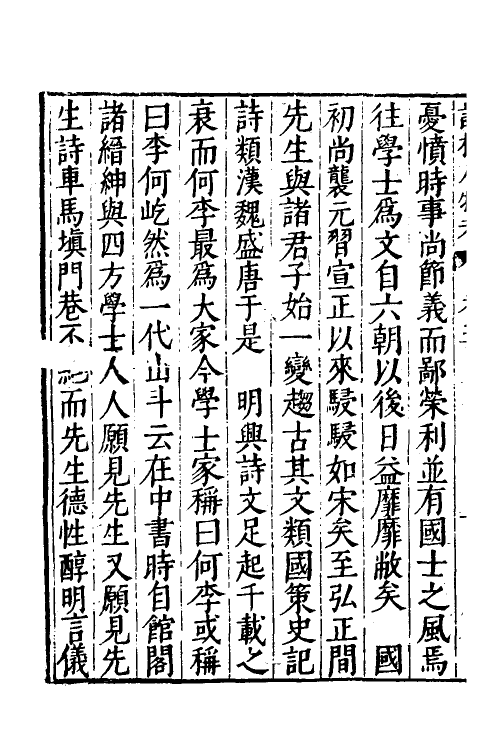 憂憤時事尚節義而鄙榮利並有國士之風焉
往學士爲文自六朝以後日益靡靡敝矣　國
初尚襲元習宣正以來駸駸如宋矣至弘正間
先生與諸君子始一變趨古其文類國策史記
詩類漢魏盛唐于是　明興詩文足起千載之
衰而何李最爲大家今學士家稱曰何李或稱
曰李何屹然爲一代山斗云在中書時自館閣
諸縉紳與四方學士人人願見先生又願見先
生詩車馬塡門巷不　而先生德性醇明言儀